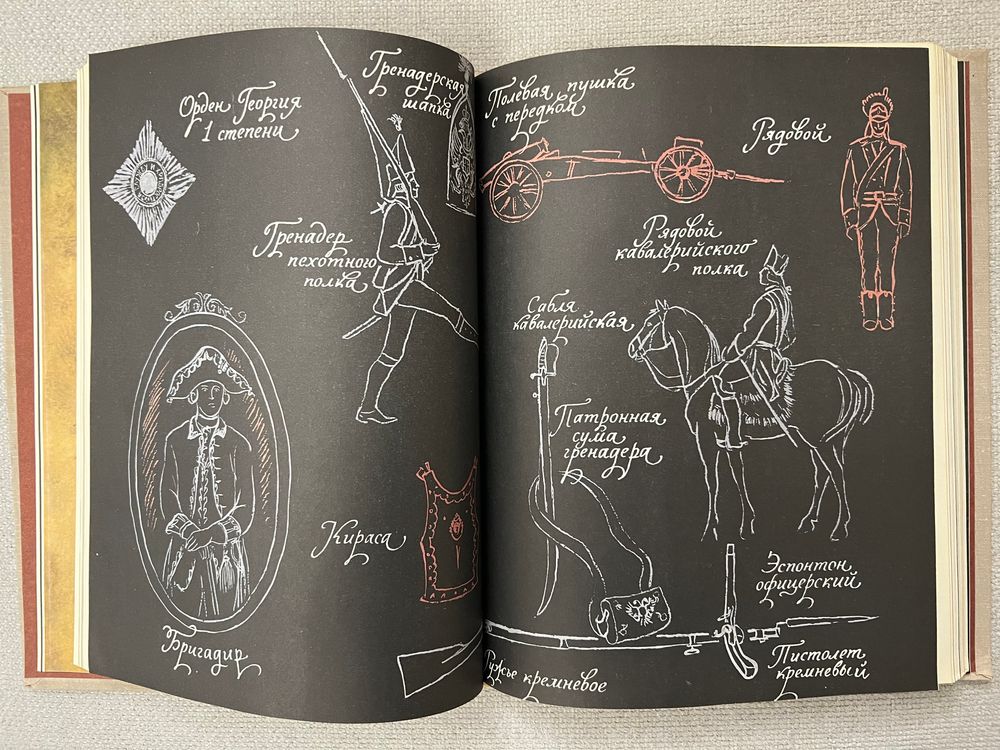 Орден Георгия
1 степени
Гренадерская
шапка
Гренадер
пехотного
полка
Кираса
Бригадир
Полевая пушка
с передком
Рядовой
Рядовой
кавалерийского
полка
Сабля
кавалерийская
Патронная
сума
гренадера
Эспонтон
офицерский
Ружье кремневое
Пистолет
кремневый